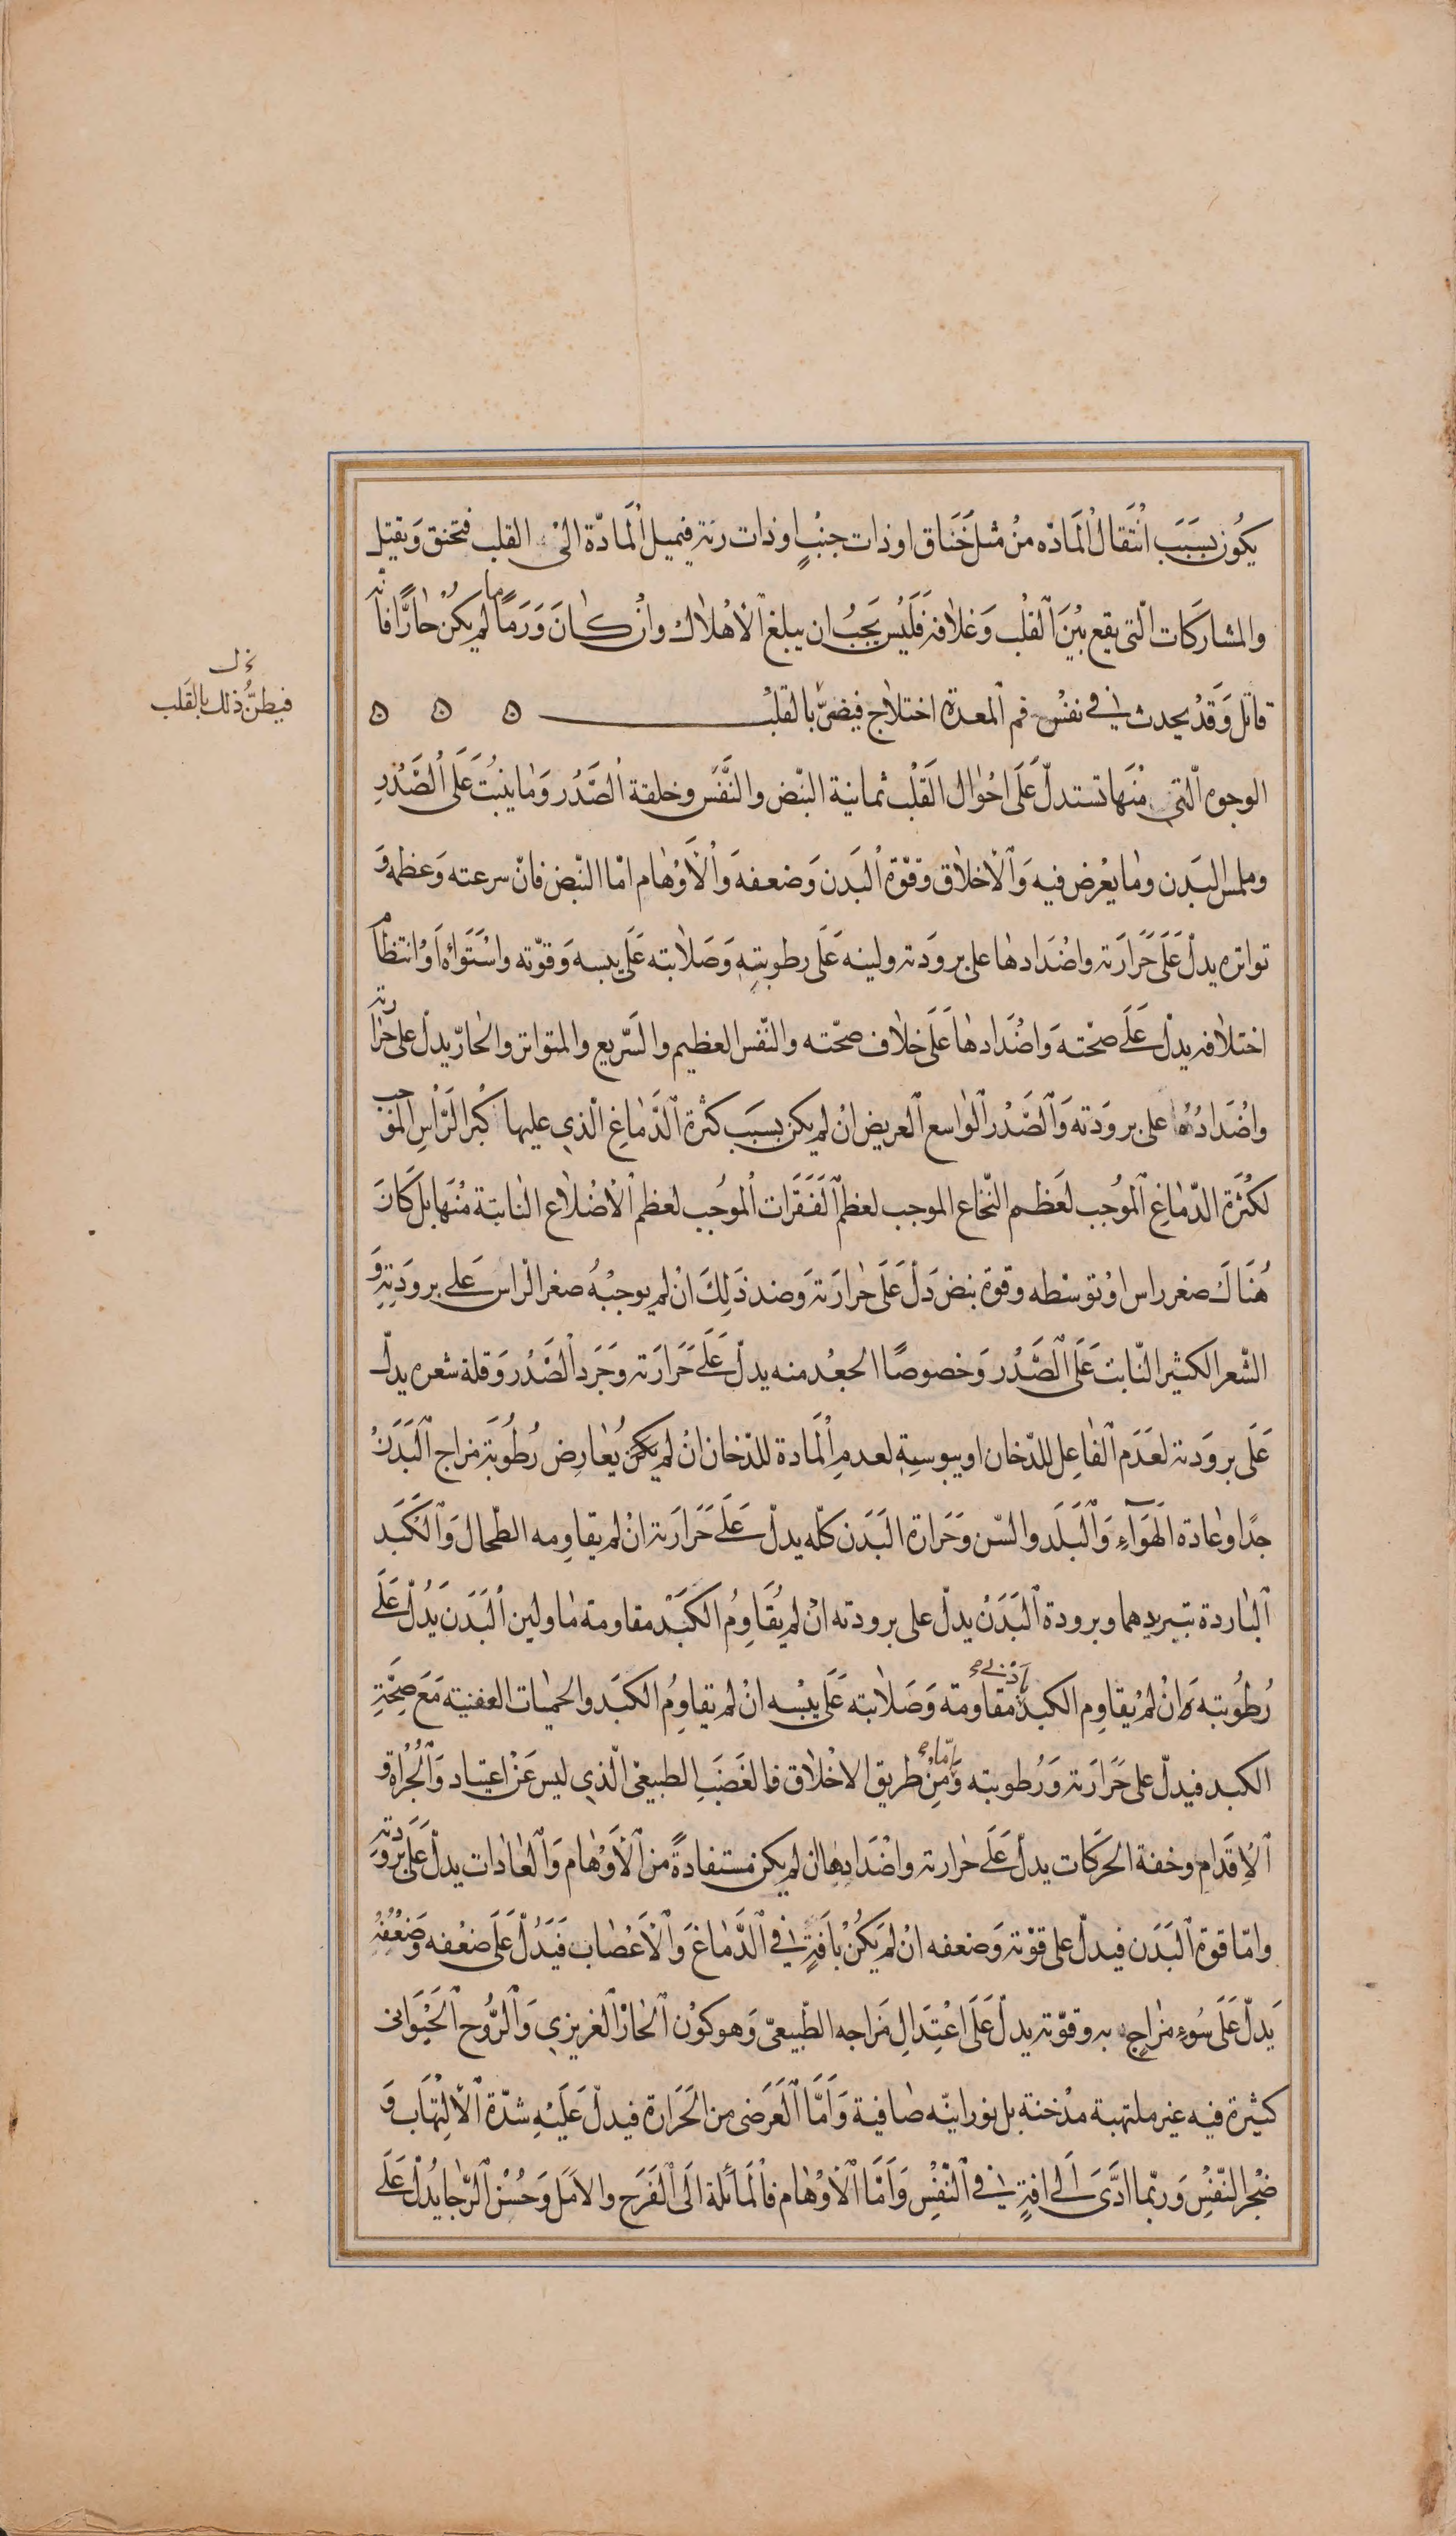 يكُون بسَبَب انْتَقال المَادّه منْ مثل خَنَاق او ذات جنْبٍ او ذات رئة فيميل المَادّة الىْ القلب فتخنق وَتقتل
والمشاركَات الّتى يقع بيْنَ القلْب وَغلاٰفه فَلَيْس يَجبُ ان يبلغ الْاهْلاٰك وانْ كٰانَ وَرَمًا ما لم يكنْ حٰارًّا فانّه
قاتل وَقَدْ يحدث في نفْس فم المعدة اختلاٰج فيضرّ بالقلبْ ه ه ه
نخ ل
فيظنّ ذلك بالقَلب
الوجوه الّتي منْهَا تستدلّ عَلَى احْوٰال القَلْب ثمانية النبّض والنَّفَس وخلقة الصَّدْر وَمٰا ينبُتَ عَلَى الصَّدْرِ
وملمس البَدن ومٰا يعْرض فيه وَالْاخلاٰق وقوّة البَدن وَضعفهَ والْاَوْهٰام امّا النّبض فانّ سرعته وَعظمه وَ
تواتره يدلّ عَلَى حَرَارَته واضْدَادهٰا على برودَته ولينه عَلَى رطوبتِهِ وَصَلاٰبته عَلَى يبسه وَقوّته واسْتَوَاؤه اَوْ انتظامَ
اختلاٰفه يدلّ عَلَى صحْته وَاضْدَادهٰا عَلَى خلاٰف صحّته والنّفس العظيم والسّريع والمتواتر والحٰارّ يدلّ على حَرٰارته
واضْدَادُهٰا على برودَته وَالصَّدْر الوٰاسع العريض انْ لم يكن بسَبَب كثرة الدَّمٰاغ الّذي عليها كبْر الرّاْس الموْجب
لكَثْرَة الدّمٰاغ الموُجب لعَظم النّخاع الموجب لعظم الفَقَرَات الموُجب لعظم الْاضْلاٰع النابتة منْهَا بل كَانَ
هُنَاكَ صغر راس اوْ توسّطه وقوّة نبض دَلّ عَلَى حٰرارَته وَضد ذَلِكَ انْ لم يوجبْهُ صغر الرّاس عَلى برودَتِهِ وَ
الشّعر الكثير النّابت عَلَى الصَّدْر وَخصوصًا الجعْد منه يدلّ عَلَى حَرَارَته وَجَرد الصَّدْر وَقلة شعره يدلّ
عَلَى برودَته لعَدَم الفٰاعِل للدّخان او يبوسيِته لعدم المَادة للدّخان انْ لم يكنْ يُعٰارِض رُطُوبَة مزاج البَدَنْ
جدًا وعٰادة الهَوَآء وَالْبَلَد والسّن وَحَرارة البَدَن كلّه يدلّ عَلَى حَرَارَته انْ لم يقاوِمه الطّحال وَالْكَبَد
البٰاردة بتبريدهما وبرودة البَدَنْ يدلّ على برودته انْ لم يُقَاوِمُ الكَبَدْ مقاومة مٰا ولين البَدَن يَدُلّ عَلَى
رُطُوبته وَانْ لم يُقاوِم الكبد اَدْنى مقاومة وَصَلاٰبته عَلَى يبْسه انْ لم تقاوِمُ الكبَد والحميٰات العفنيته مَعَ صِحّةِ
الكبد فيدلّ على حَرَارَته وَرُطوبته وَامّا منْ طريق الاخْلاٰق فالغَضَبَ الطبيعى الّذي ليس عَنْ اعتياد وَالْجُرْاة وَ
الْاِقَدام وخفة الحَرَكات يدلّ عَلَى حٰرارته واضْدَادِهٰا ان لم يكن مستفادةً من الْاَوْهٰام وَالْعٰادات يدلّ عَلَى بَرودَته
وامّا قوة البَدَن فيدلّ على قوّته وَضعفه انْ لم يَكُنْ بآفَةٍ فى الدَّمٰاغ وَالْاَعْصٰاب فَيَدُلّ عَلَى ضعْفه وَضعْفُهُ
يَدلّ عَلَى سُوءِ مزٰاجٍ به وقوّته يدلّ عَلَى اعْتِدَالِ مَزاجه الطّبيعىّ وَهو كوْن الحٰارّ الغريزي وَالرّوُح الحَيْوَانى
كثيرة فيه غير ملتهبة مدْخنة بل نورانيّه صٰافية وَاَمَّا العَرَضى من الحَرَارة فيدلّ عَلَيْهِ شدّة الْالْتِهَاب وَ
ضجْر النّفسْ وَربّما ادَّىَ الَى افةٍ فى النّفْسِ وَاَمّا الْاَوْهٰام فالمَائلة الَى الفَرَح والاَمَل وَحُسْن الرّجٰا يُدلّ عَلَى